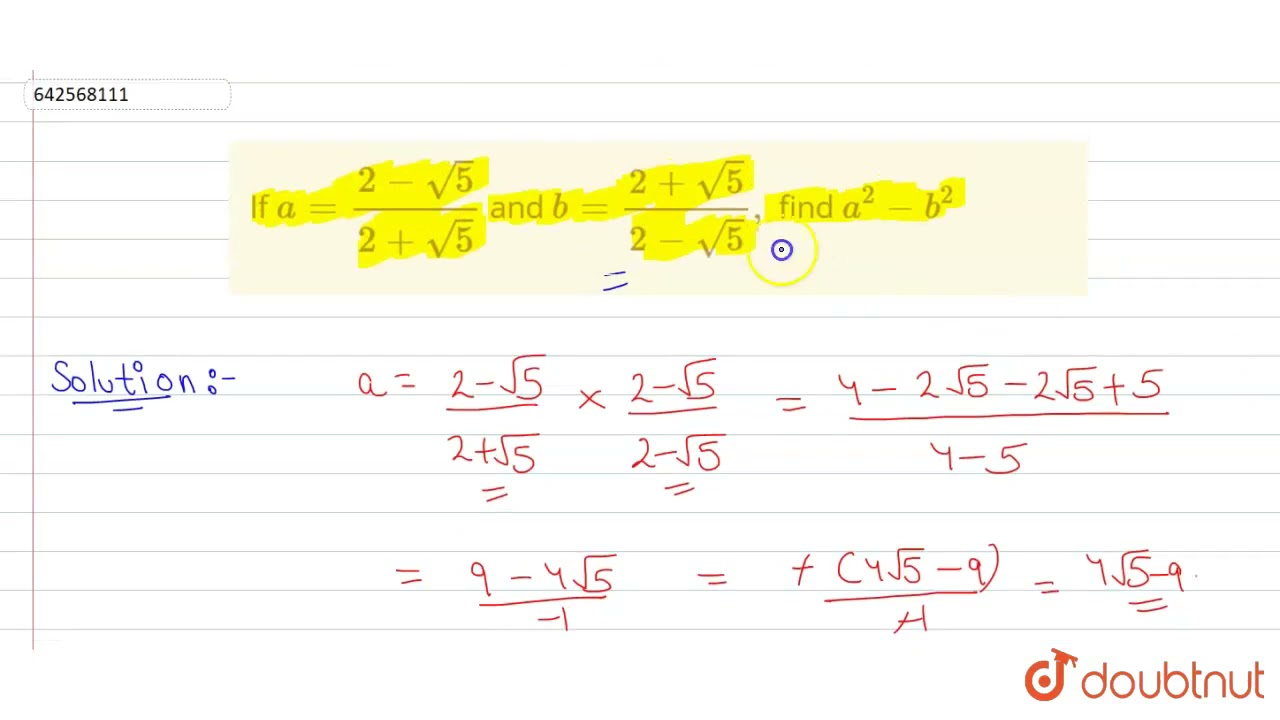 642568111
If a = (2 − √5)/(2 + √5) and b = (2 + √5)/(2 − √5), find a² − b²
Solution :-
a = (2-√5)/(2+√5) × (2-√5)/(2-√5) = (4 - 2√5 - 2√5 + 5)/(4-5)
= (9 - 4√5)/-1 = +(4√5 - 9)/+1 = 4√5-9.
doubtnut